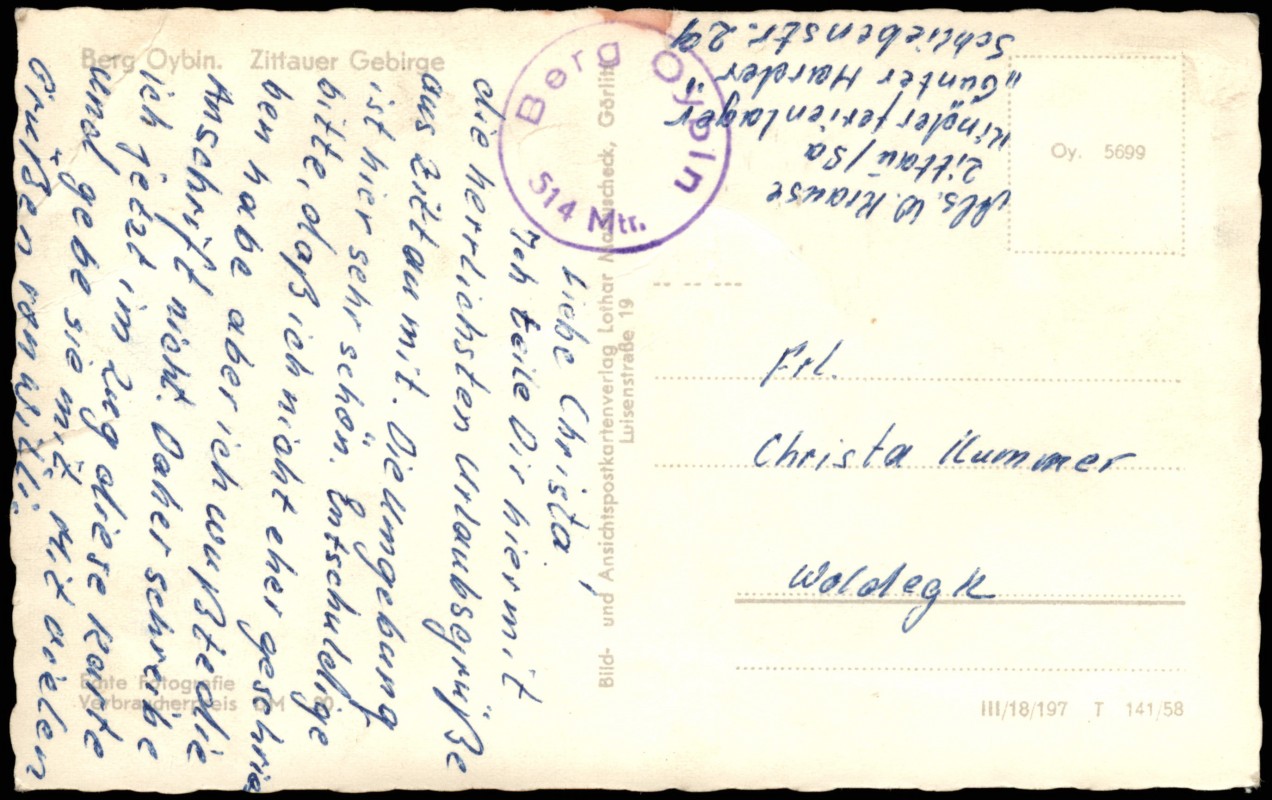 Berg Oybin. Zittauer Gebirge
Liebe Christa!
Ich teile Dir hiermit
die herrlichsten Urlaubsgrüße
aus Zittau mit. Die Umgebung
ist hier sehr schön. Entschuldige
bitte, daß ich nicht eher geschrie
ben habe aber ich wußte die
Anschrift nicht. Daher schreibe
ich jetzt im Zug diese Karte
und gebe sie mit. Mit vielen
Grüßen von Willi
Echte Fotografie
Verbraucherpreis DM
Berg Oybin
514 Mtr.
Bild- und Ansichtspostkartenverlag Lothar Mauscheck, Görlitz
Luisenstraße 19
Abs. W. Krause
Zittau/Sa
Kinderferienlager
„Günter Harder"
Schliebenstr. 29
Oy. 5699
Frl.
Christa Kummer
Woldegk
III/18/197 T 141/58